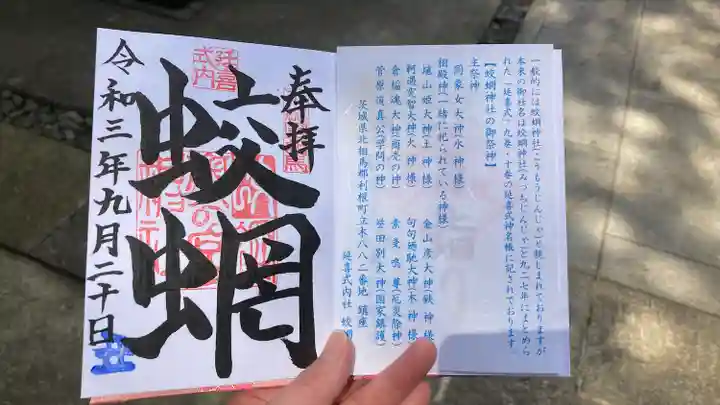 一般的には蛟蝄神社(こうもうじんじゃ)と親しまれておりますが
本来の御社名は蛟蝄神社(みつちじんじゃ)と九二七年にまとめら
れた「延喜式」九巻・十巻の延喜式神名帳に記されております。
【蛟蝄神社の御祭神】
主祭神
罔象女大神(水 神 様)
相殿神(一緒に祀られている神様)
埴山姫大神(土 神 様)
金山彦大神(鉄 神 様)
軻遇突智大神(火 神 様)
句句廼馳大神(木 神 様)
倉稲魂大神(商売の神)
素戔嗚尊(厄災除神)
菅原道真公(学問の神)
誉田別大神(国家鎮護)
茨城県北相馬郡利根町立木八八二番地 鎮座
延喜式内社 蛟
奉拝
延喜
式内
蛟蝄
令和三年九月二十日